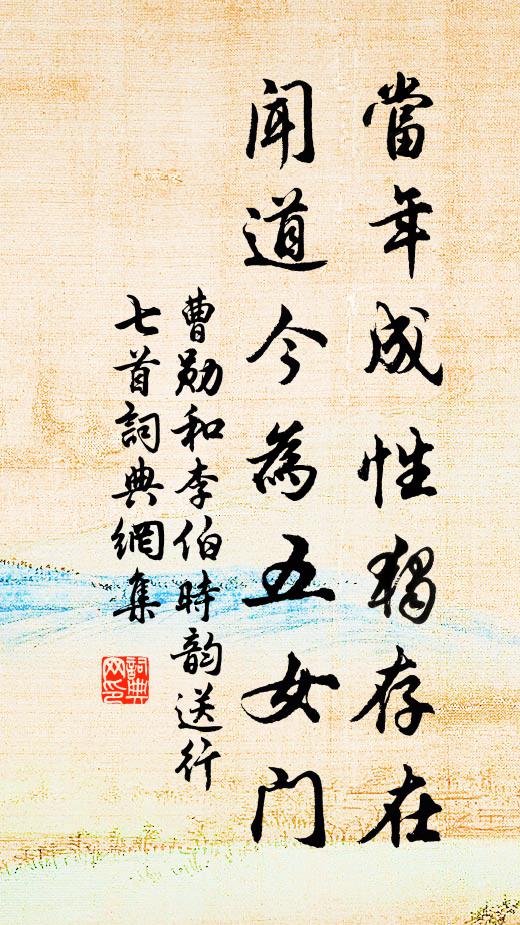 當年成性獨存在
聞道今為五女門
曹勛和李伯時韵送行
七首詞典網集
詞典
网印